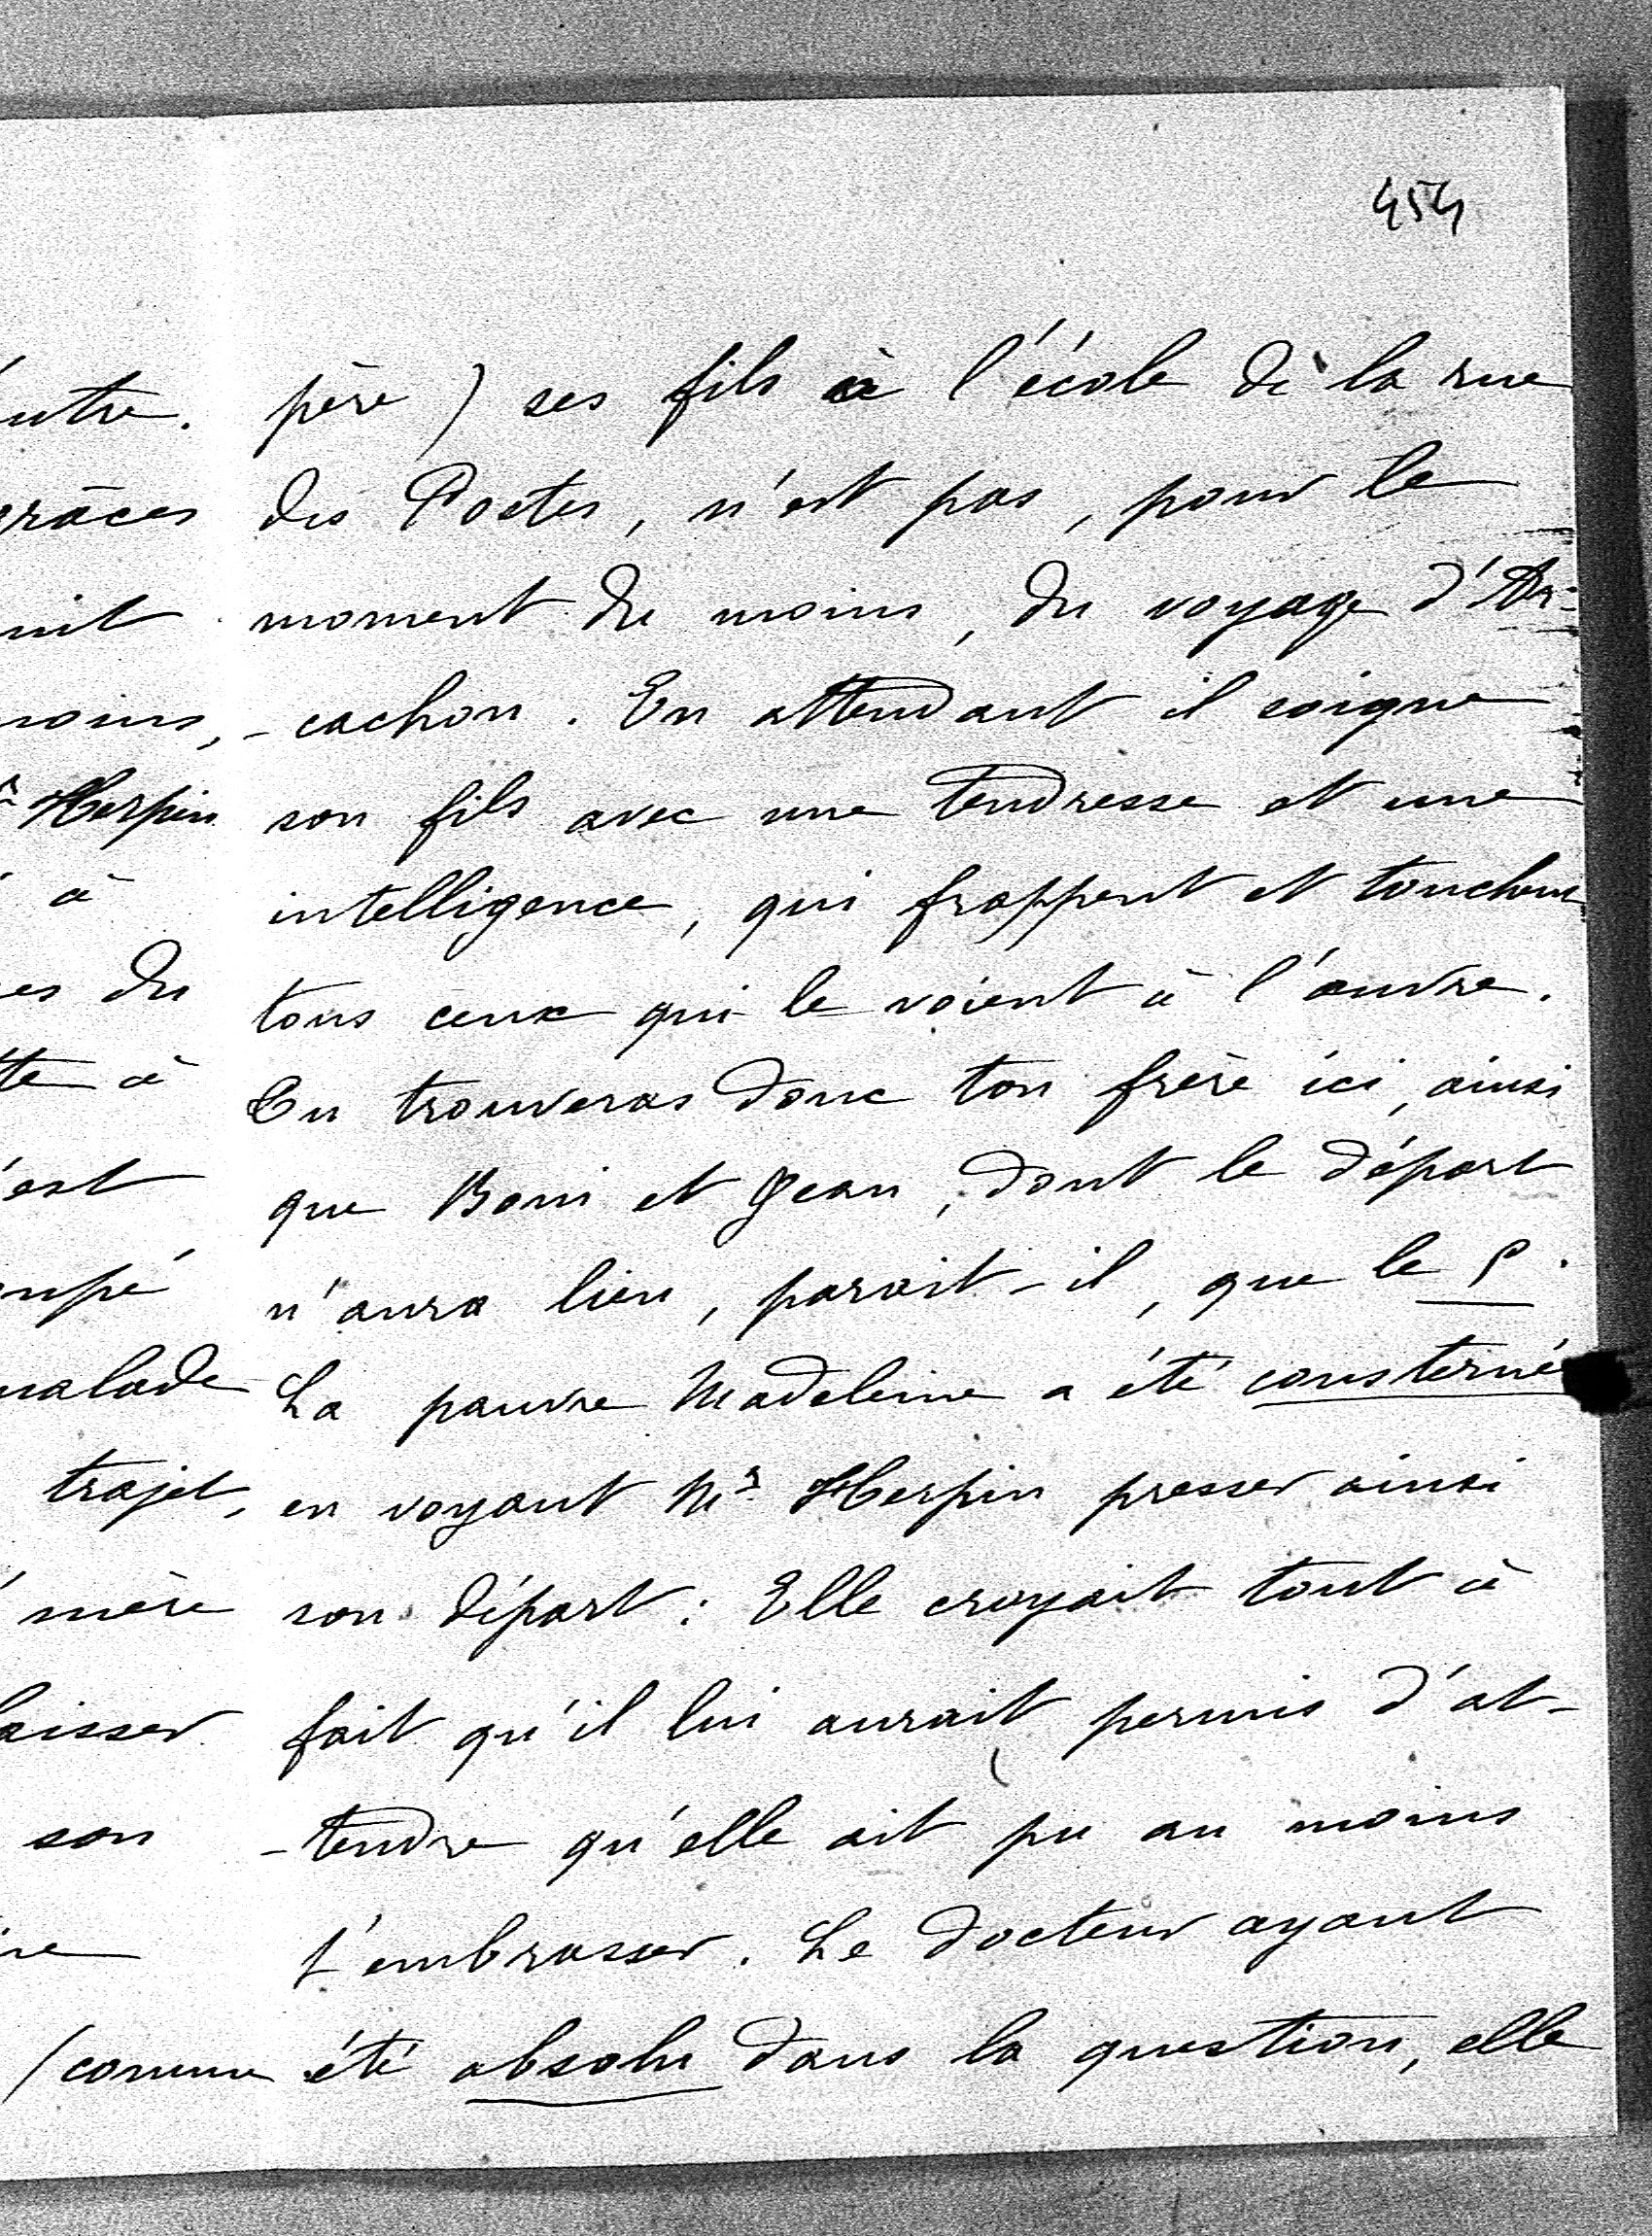 454
père) ses fils à l'école de la rue
des Postes, n'est pas, pour le
moment du moins, du voyage d'Ar-
-cachon. En attendant il soigne
son fils avec une tendresse et une
intelligence, qui frappent et touchent
tous ceux qui le voient à l'œuvre.
Tu trouveras donc ton frère ici, ainsi
que Boni et Jean, dont le départ
n'aura lieu, parait-il, que le 9.
La pauvre Madeleine a été consternée
en voyant Mr Herpin presser ainsi
son départ: Elle croyait tout à
fait qu'il lui aurait permis d'at-
-tendre qu'elle ait pu au moins
t'embrasser. Le docteur ayant
été absolu dans la question, elle
utre.
grâces
nit
moins,
r Herpin
à
es du
tte à
'est
upé
malade
trajet,
mère
laisser
son
ire
(comme